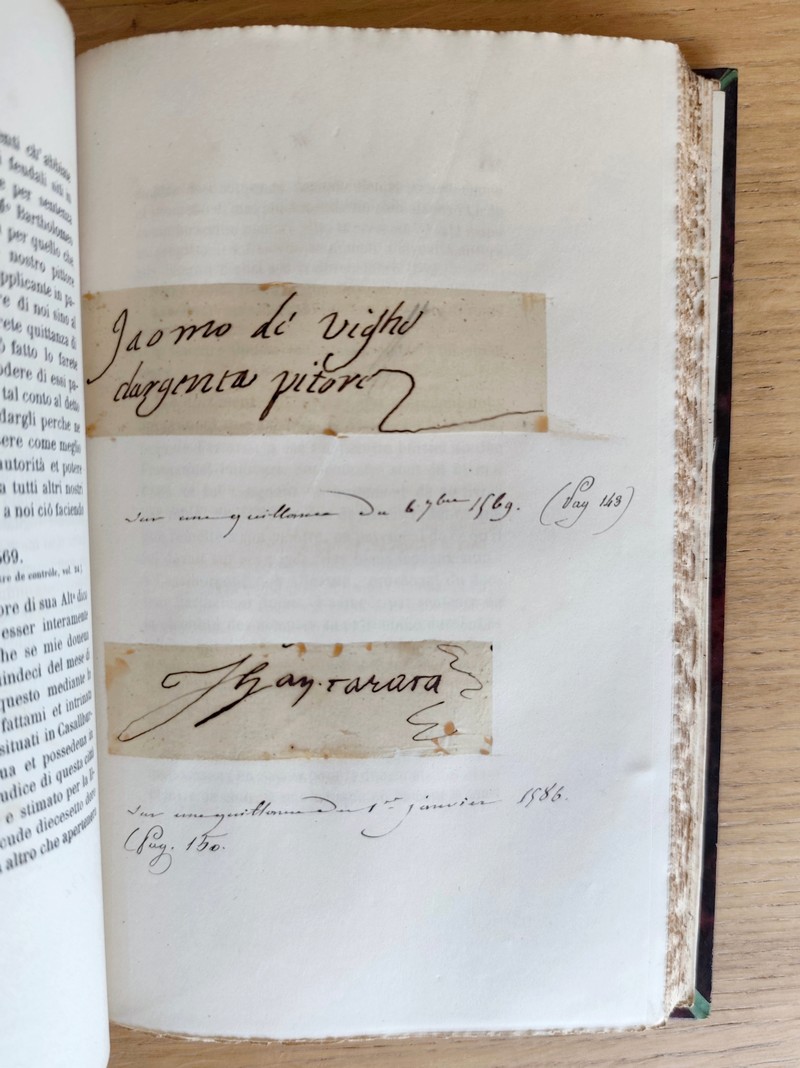 enti ch' abbiano
i feudali siti in
e per sentenza
Bartholomeo
per quello che
nostro pittore
pplicante in pa-
re di noi sino al
rete quittanza di
ò fatto lo farete
odere di essi pa-
tal conto al detto
dargli perche ne
sere come meglio
autorità et potere
a tutti altri nostri
a noi ciò faciendo
569.
tre de contrôle, vol. 14)
ore di sua Alta
esser interamente
he se mie doveva
uindeci del mese di
questo mediante la
fattami et intrinian
situati in Casallbur-
ua et possedeua in
udice di questa città
e stimato per la
cude diecesetto
altro che apertenere
Jaomo de' vighi
dargenta pitore
Sur une quittance du 6 7bre 1569. (Pag 143)
Jhan. carara
Sur une quittance du 1er janvier 1586.
(Pag. 150.